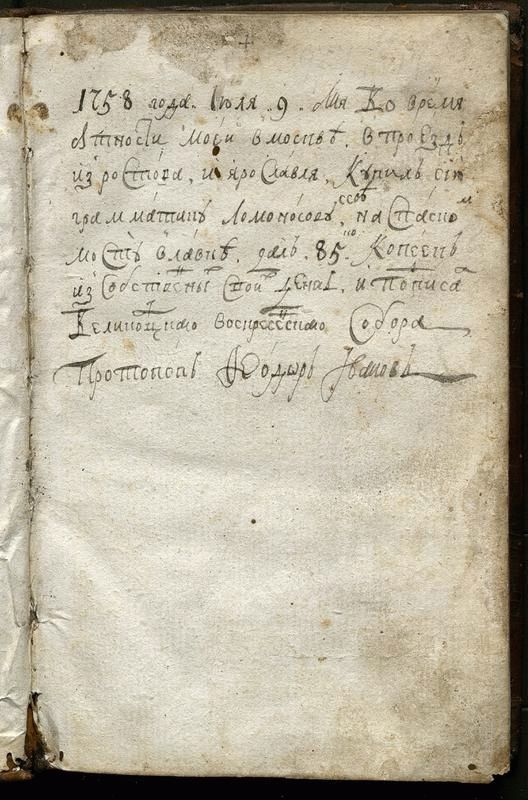 1758 года. Іюля. 9. дня Во время
бытности моеи в москвѣ, в проѣздъ
из ростова, и ярославля, Купилъ сию
грамматикъ Ломоносовъ, на спаско
мосту в лавкѣ, далъ. 85. Копеекъ
из собственны цены, и подписа
Великоцкаго воскресенскаго Собора
Протопопъ Ѳеодоръ Ивановъ